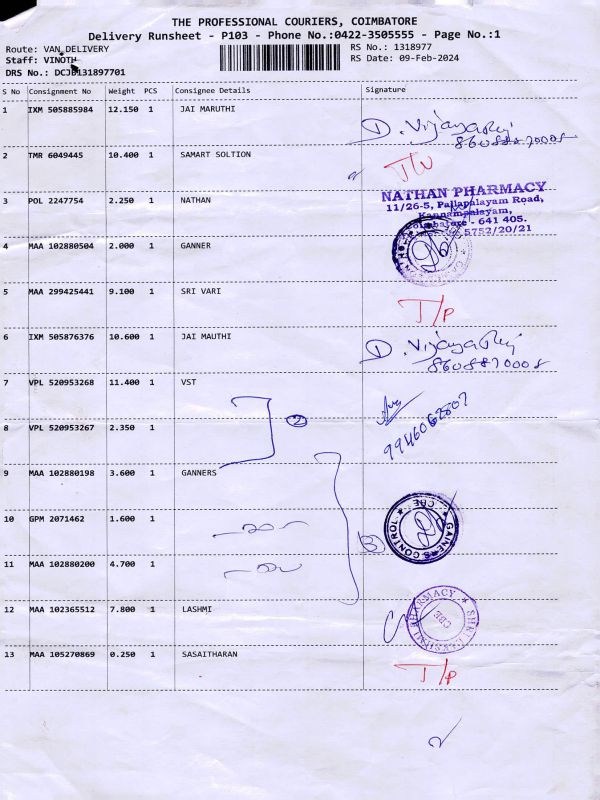 THE PROFESSIONAL COURIERS, COIMBATORE
Delivery Runsheet - P103 - Phone No.:0422-3505555 - Page No.:1
Route: VAN DELIVERY RS No.: 1318977
Staff: VINOTH RS Date: 09-Feb-2024
DRS No.: DCJB131897701
S No Consignment No Weight PCS Consignee Details Signature
1 IXM 505885984 12.150 1 JAI MARUTHI
D. Vijaya
2 TMR 6049445 10.400 1 SAMART SOLTION
3 POL 2247754 2.250 1 NATHAN
NATHAN PHARMACY
11/26-5, Pallapalayam Road,
Kannampalayam,
Coimbatore - 641 405.
5752/20/21
4 MAA 102880504 2.000 1 GANNER
5 MAA 299425441 9.100 1 SRI VARI
T/P
6 IXM 505876376 10.600 1 JAI MAUTHI
D. Vijaya
8608870008
7 VPL 520953268 11.400 1 VST
8 VPL 520953267 2.350 1
2
9946062507
9 MAA 102880198 3.600 1 GANNERS
10 GPM 2071462 1.600 1
3
GAINERS CONTROL * CBE *
11 MAA 102880200 4.700 1
12 MAA 102365512 7.800 1 LASHMI
SHRI LAKSHMI PHARMACY * CBE
13 MAA 105270869 0.250 1 SASAITHARAN
T/P